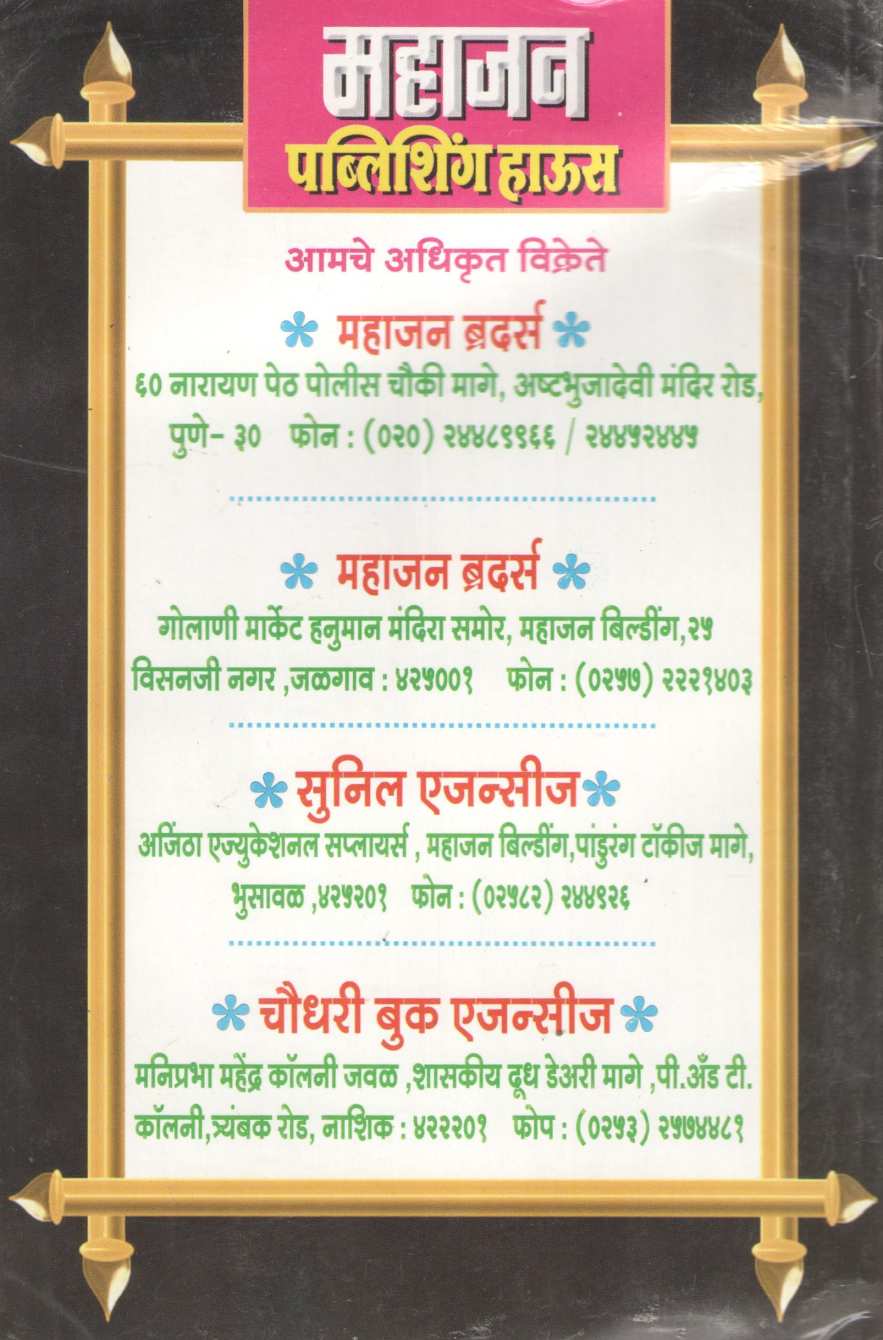 महाजन
पब्लिशिंग हाऊस
आमचे अधिकृत विक्रेते
* महाजन ब्रदर्स *
६० नारायण पेठ पोलीस चौकी मागे, अष्टभुजादेवी मंदिर रोड,
पुणे- ३० फोन : (०२०) २४४८९९६६ / २४४५२४४५
* महाजन ब्रदर्स *
गोलाणी मार्केट हनुमान मंदिरा समोर, महाजन बिल्डींग,२५
विसनजी नगर ,जळगाव : ४२५००१ फोन : (०२५७) २२२१४०३
* सुनिल एजन्सीज *
अजिंठा एज्युकेशनल सप्लायर्स , महाजन बिल्डींग,पांडुरंग टॉकीज मागे,
भुसावळ ,४२५२०१ फोन : (०२५८२) २४४९२६
* चौधरी बुक एजन्सीज *
मनिप्रभा महेंद्र कॉलनी जवळ ,शासकीय दूध डेअरी मागे ,पी.अँड टी.
कॉलनी,त्र्यंबक रोड, नाशिक : ४२२२०१ फोप : (०२५३) २५७४४८१